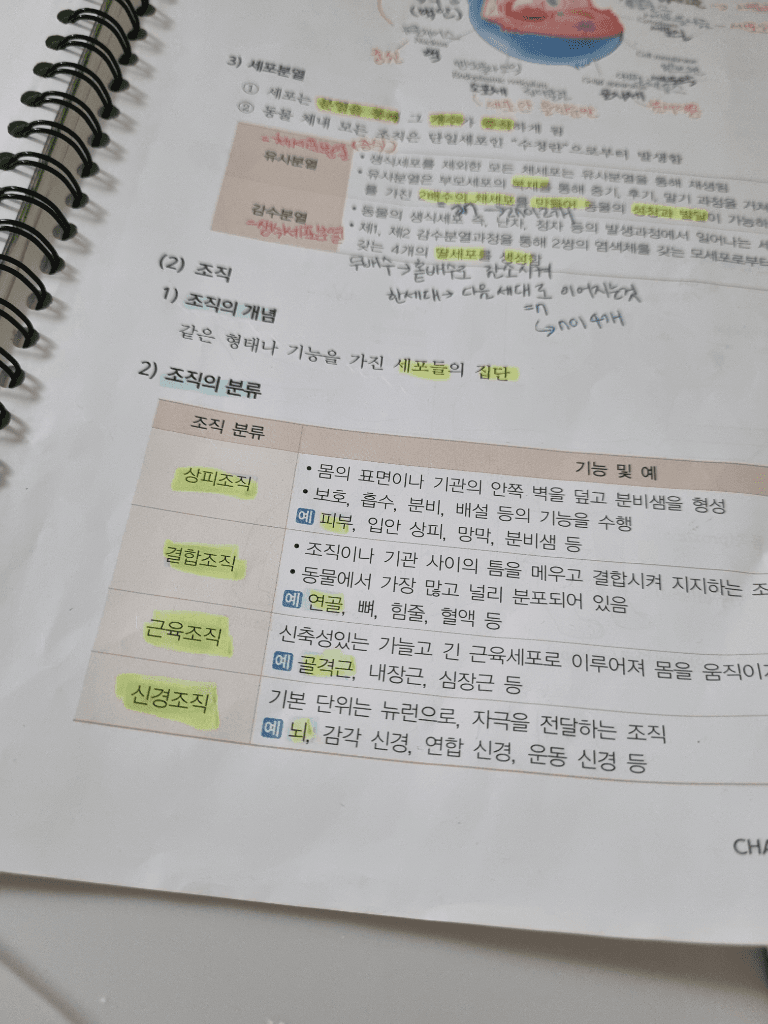 핵
3) 세포분열
① 세포는 분열을 통해 그 개수가 증식하게 됨
② 동물 체내 모든 조직은 단일세포인 "수정란"으로부터 발생함
유사분열
= 체세포분열 (증식)
• 생식세포를 제외한 모든 체세포는 유사분열을 통해 재생됨
• 유사분열은 부모세포의 복제를 통해 중기, 후기, 말기 과정을 거쳐
를 가진 2배수의 체세포를 만들어 동물의 성장과 발달이 가능하
감수분열
=생식세포분열
• 동물의 생식세포 즉, 난자, 정자 등의 발생과정에서 일어나는 세
• 제1, 제2 감수분열과정을 통해 2쌍의 염색체를 갖는 모세포로부터
갖는 4개의 딸세포를 생성함
두배수→홑배수로 감소시켜
한세대→ 다음 세대로 이어지는것
=n
↳ n이 4개
(2) 조직
1) 조직의 개념
같은 형태나 기능을 가진 세포들의 집단
2) 조직의 분류
조직 분류
기능 및 예
상피조직
• 몸의 표면이나 기관의 안쪽 벽을 덮고 분비샘을 형성
• 보호, 흡수, 분비, 배설 등의 기능을 수행
예 피부, 입안 상피, 망막, 분비샘 등
결합조직
• 조직이나 기관 사이의 틈을 메우고 결합시켜 지지하는 조
• 동물에서 가장 많고 널리 분포되어 있음
예 연골, 뼈, 힘줄, 혈액 등
근육조직
신축성있는 가늘고 긴 근육세포로 이루어져 몸을 움직이
예 골격근, 내장근, 심장근 등
신경조직
기본 단위는 뉴런으로, 자극을 전달하는 조직
예 뇌, 감각 신경, 연합 신경, 운동 신경 등
CHA